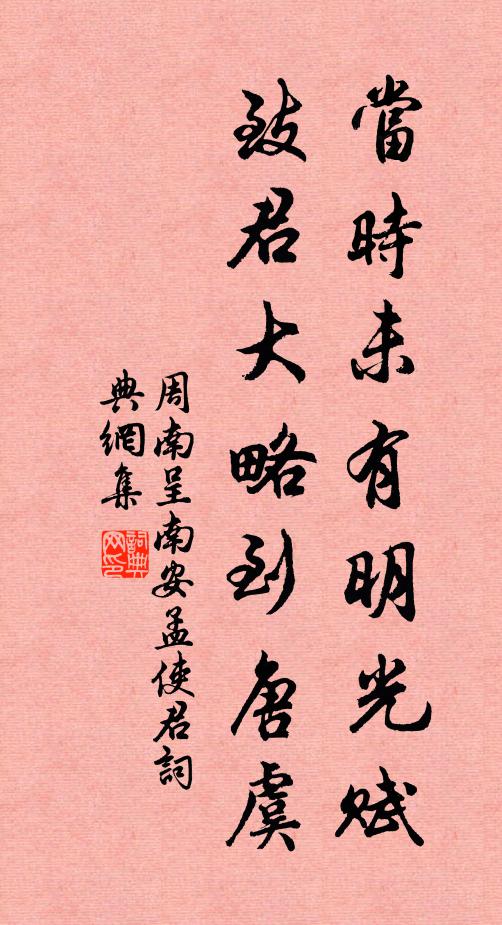 當時未有明光賦
致君大略到唐虞
周南呈南安孟使君詞
典網集
詞典网印